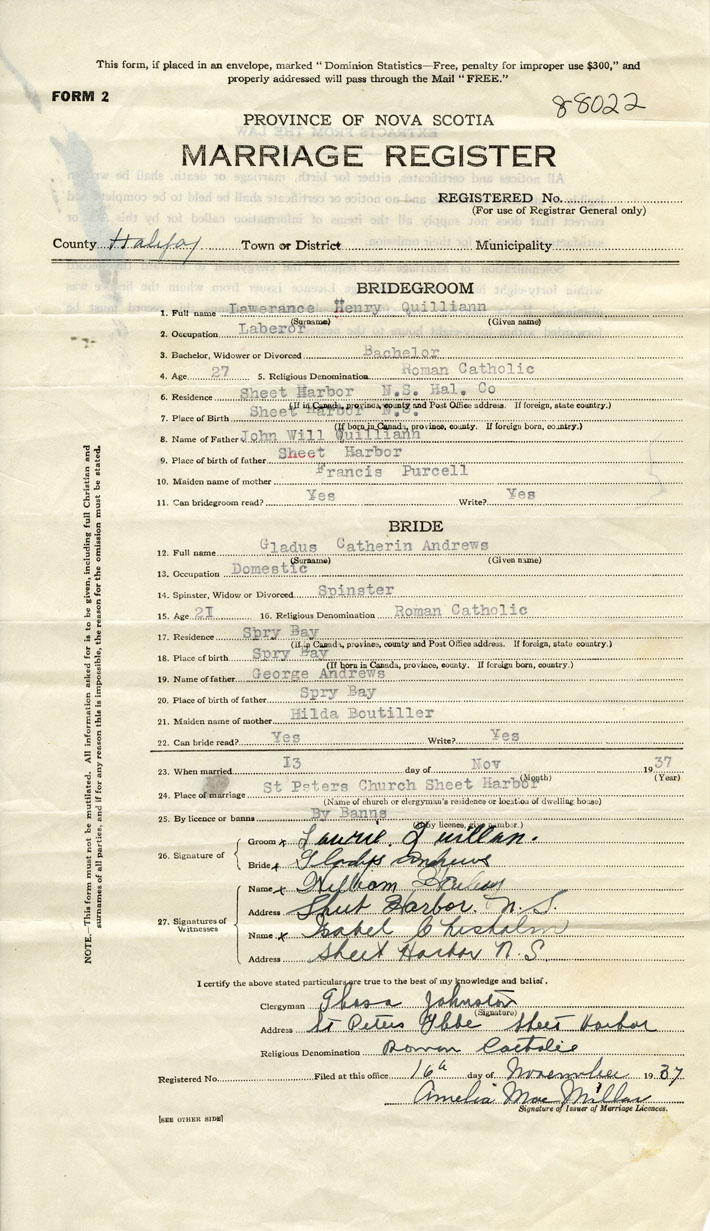 This form, if placed in an envelope, marked "Dominion Statistics—Free, penalty for improper use $300," and
properly addressed will pass through the Mail "FREE."
FORM 2
88022
PROVINCE OF NOVA SCOTIA
MARRIAGE REGISTER
REGISTERED No.
(For use of Registrar General only)
County Halifax Town or District Municipality
BRIDEGROOM
1. Full name Lawerance Henry Quilliann
(Surname) (Given name)
2. Occupation Laberor
3. Bachelor, Widower or Divorced Bachelor
4. Age 27 5. Religious Denomination Roman Catholic
6. Residence Sheet Harbor N.S. Hal. Co
(If in Canada, province, county and Post Office address. If foreign, state country.)
7. Place of Birth Sheet Harbor N.S.
(If born in Canada, province, county. If foreign born, country.)
8. Name of Father John Will Quilliann
9. Place of birth of father Sheet Harbor
10. Maiden name of mother Francis Purcell
11. Can bridegroom read? Yes Write? Yes
BRIDE
12. Full name Gladus Catherin Andrews
(Surname) (Given name)
13. Occupation Domestic
14. Spinster, Widow or Divorced Spinster
15. Age 2I 16. Religious Denomination Roman Catholic
17. Residence Spry Bay
(If in Canada, province, county and Post Office address. If foreign, state country.)
18. Place of birth Spry Bay
(If born in Canada, province, county. If foreign born, country.)
19. Name of father George Andrews
20. Place of birth of father Spry Bay
21. Maiden name of mother Hilda Boutiller
22. Can bride read? Yes Write? Yes
23. When married I3 day of Nov 1937
(Month) (Year)
24. Place of marriage St Peters Church Sheet Harbor
(Name of church or clergyman's residence or location of dwelling house)
25. By licence or banns By Banns
(If by licence, give number.)
26. Signature of
Groom x Laurie Quillan.
Bride x Gladys Andrews
27. Signatures of Witnesses
Name x William
Address Sheet Harbor. N.S.
Name x Isabel Chisholm
Address Sheet Harbor N.S.
I certify the above stated particulars are true to the best of my knowledge and belief.
Clergyman Johnston
(Signature)
Address St Peters Sheet Harbor
Religious Denomination Roman Catholic
Registered No. Filed at this office 16th day of November 1937
Amelia MacMillan
Signature of Issuer of Marriage Licences.
[SEE OTHER SIDE]
NOTE.—This form must not be mutilated. All information asked for is to be given, including full Christian and
surnames of all parties, and if for any reason this is impossible, the reason for the omission must be stated.